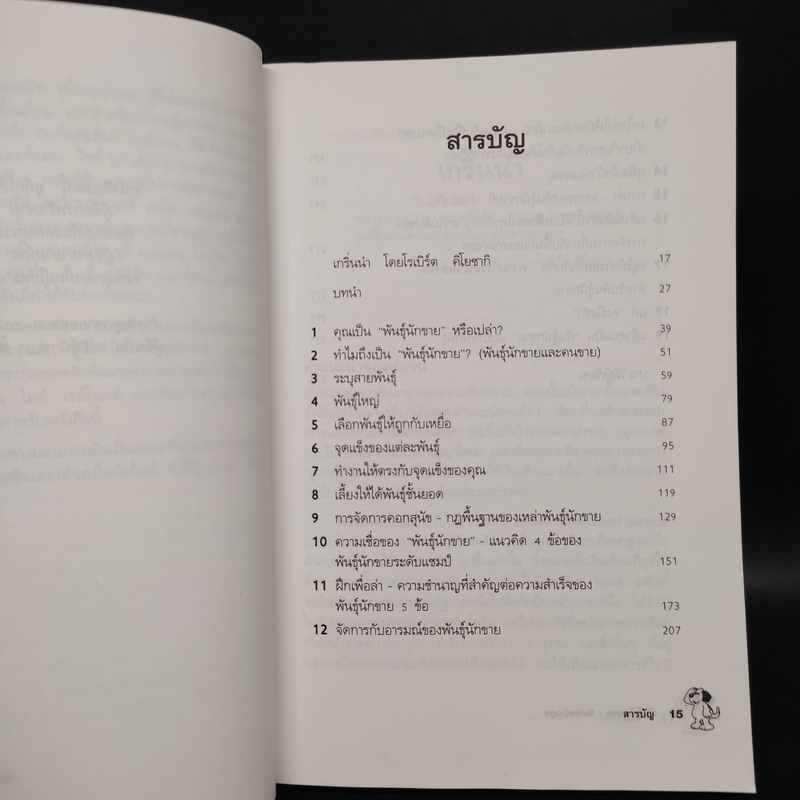 สารบัญ
เกริ่นนำ โดยโรเบิร์ต คิโยซากิ 17
บทนำ 27
1 คุณเป็น "พันธุ์นักขาย" หรือเปล่า? 39
2 ทำไมถึงเป็น "พันธุ์นักขาย"? (พันธุ์นักขายและคนขาย) 51
3 ระบุสายพันธุ์ 59
4 พันธุ์ใหญ่ 79
5 เลือกพันธุ์ให้ถูกกับเหยื่อ 87
6 จุดแข็งของแต่ละพันธุ์ 95
7 ทำงานให้ตรงกับจุดแข็งของคุณ 111
8 เลี้ยงให้ได้พันธุ์ชั้นยอด 119
9 การจัดการคอกสุนัข - กฎพื้นฐานของเหล่าพันธุ์นักขาย 129
10 ความเชื่อของ "พันธุ์นักขาย" - แนวคิด 4 ข้อของ
พันธุ์นักขายระดับแชมป์ 151
11 ฝึกเพื่อล่า - ความชำนาญที่สำคัญต่อความสำเร็จของ
พันธุ์นักขาย 5 ข้อ 173
12 จัดการกับอารมณ์ของพันธุ์นักขาย 207
สารบัญ 15